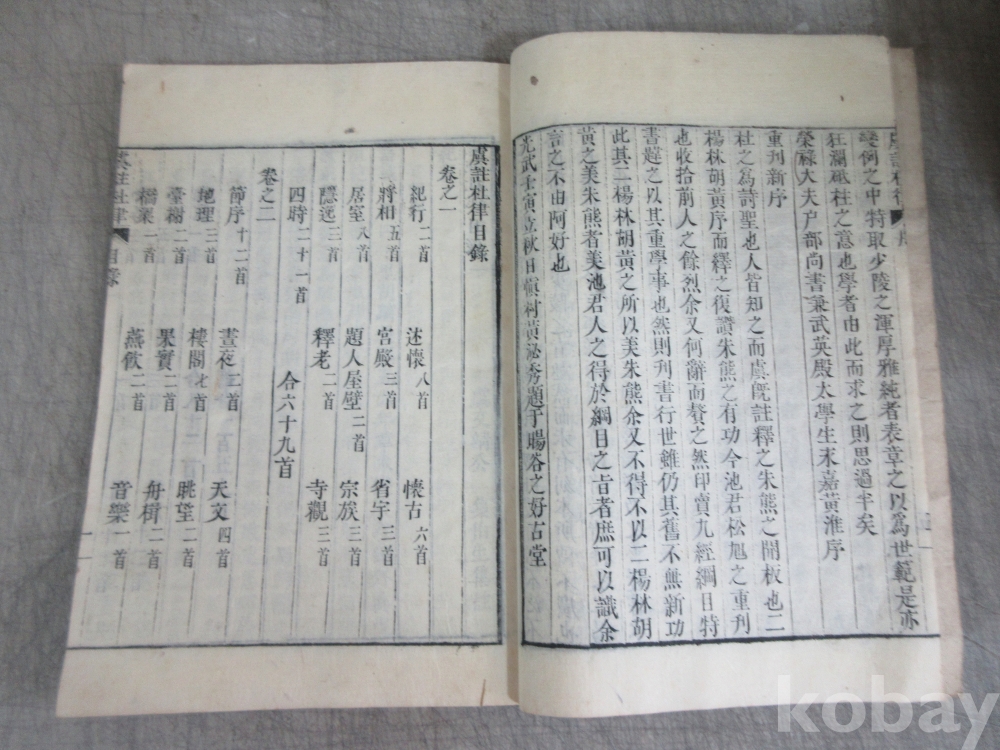 幾例之中特取少陵之渾厚雅純者表章之以爲世範是亦
狂瀾砥柱之意也學者由此而求之則思過半矣
榮祿大夫户部尚書兼武英殿太學生末嘉黃淮序
重刊新序
杜之爲詩聖也人皆知之而虞旣註釋之朱熊之開板也二
楊林胡黃序而釋之復讚朱熊之有功今池君松旭之重刊
也收拾前人之餘烈余又何辭而贅之然印賣九經綱目特
書題之以其重學事也然則刊書行世雖仍其舊不無新功
此其二楊林胡黃之所以美朱熊余又不得不以二楊林胡
黃之美朱熊者美池君人之得於綱目之旨者庶可以識余
言之不由阿好也
光武壬寅立秋日愼村黃泌秀題于暘谷之好古堂
虞註杜律目錄
卷之一
紀行二首 述懷八首 懷古六首
將相五首 宮殿三首 省宇三首
居室八首 題人屋壁二首 宗族三首
隱逸三首 釋老二首 寺觀三首
四時二十一首 合六十九首
卷之二
節序十二首 晝夜二首 天文四首
地理三首 樓閣七首 眺望二首
臺榭二首 果實二首 舟楫二首
橋梁一首 燕飮二首 音樂一首
虞註杜律 目錄 一
kobay